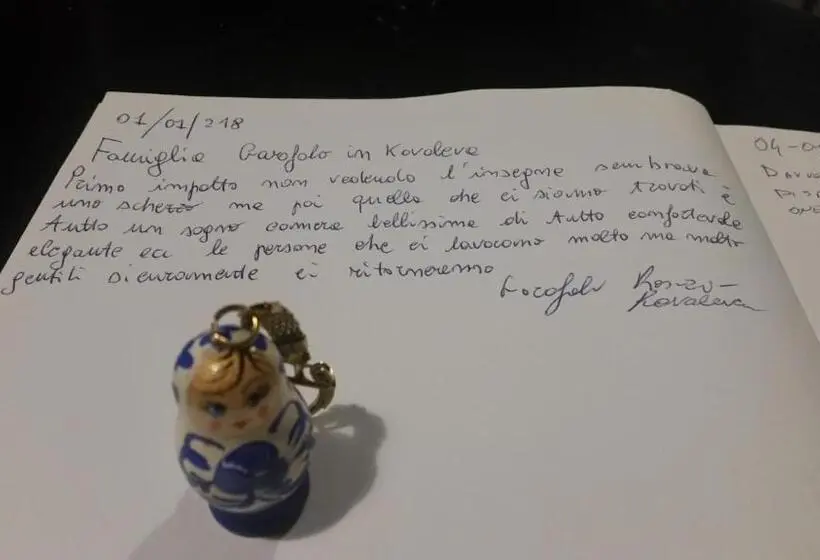 01/01/218
Famiglia Garofolo in Kovaleva
Primo impatto non vedendo l'insegne sembrava
uno scherzo me poi quello che ci siamo trovati è
tutto un sogno camera bellissime di tutto confortevole
elegante ecc le persone che ci lavorano molto ma molto
gentili sicuramente ci ritorneremo
Garofolo
Kovaleva
04-0